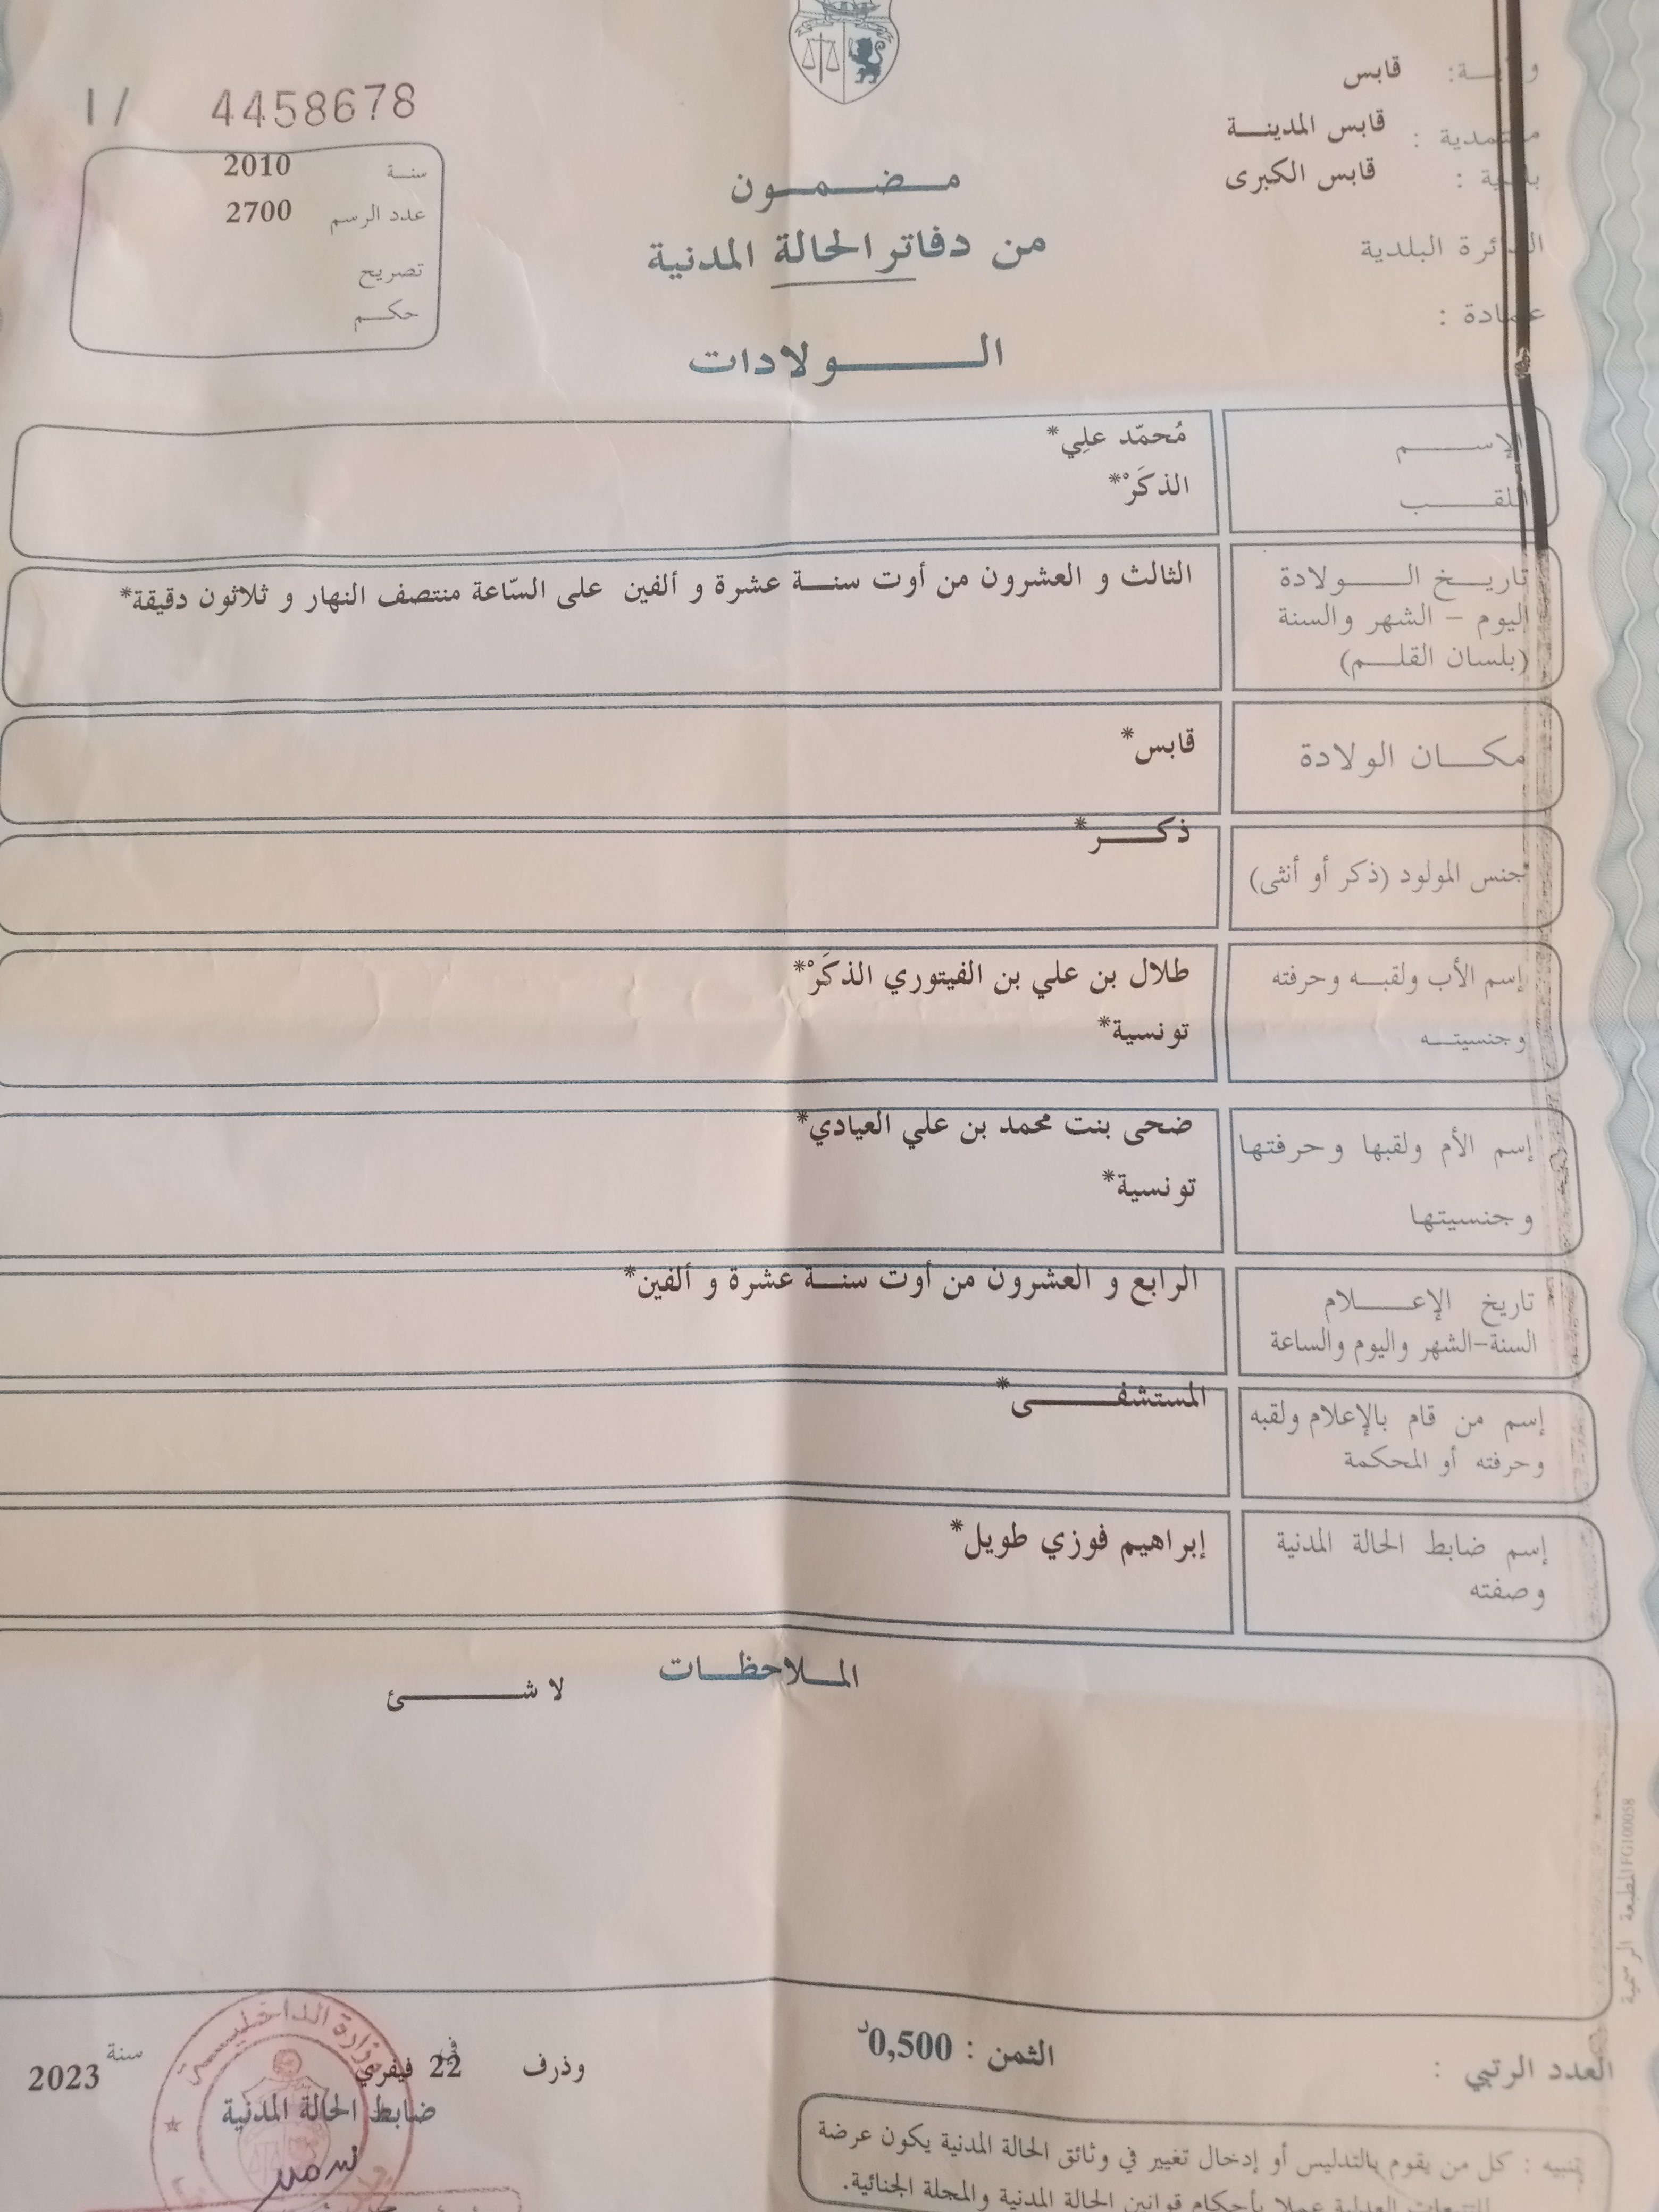 ولاية: قابس
معتمدية : قابس المدينة
بلدية : قابس الكبرى
الدائرة البلدية
عمادة :
1/ 4458678
سنة 2010
عدد الرسم 2700
تصريح
حكم
مضمون
من دفاتر الحالة المدنية
الولادات
الإسم مُحمّد علِي*
اللقب الذكَرْ*
تاريخ الولادة الثالث و العشرون من أوت سنة عشرة و ألفين على السّاعة منتصف النهار و ثلاثون دقيقة*
اليوم – الشهر والسنة
(بلسان القلم)
مكان الولادة قابس*
ذكر*
جنس المولود (ذكر أو أنثى)
إسم الأب ولقبه وحرفته طلال بن علي بن الفيتوري الذكَرْ*
وجنسيته تونسية*
إسم الأم ولقبها وحرفتها ضحى بنت محمد بن علي العيادي*
وجنسيتها تونسية*
تاريخ الإعلام الرابع و العشرون من أوت سنة عشرة و ألفين*
السنة-الشهر واليوم والساعة
إسم من قام بالإعلام ولقبه المستشفى*
وحرفته أو المحكمة
إسم ضابط الحالة المدنية إبراهيم فوزي طويل*
وصفته
الملاحظات
لا شئ
المطبعة الرسمية FG100058
العدد الرتبي :
الثمن : 0,500د
وذرف في 22 فيفري سنة 2023
ضابط الحالة المدنية
وزارة الداخلية
تنبيه : كل من يقوم بالتدليس أو إدخال تغيير في وثائق الحالة المدنية يكون عرضة
للتتبعات العدلية عملا بأحكام قوانين الحالة المدنية والمجلة الجنائية.